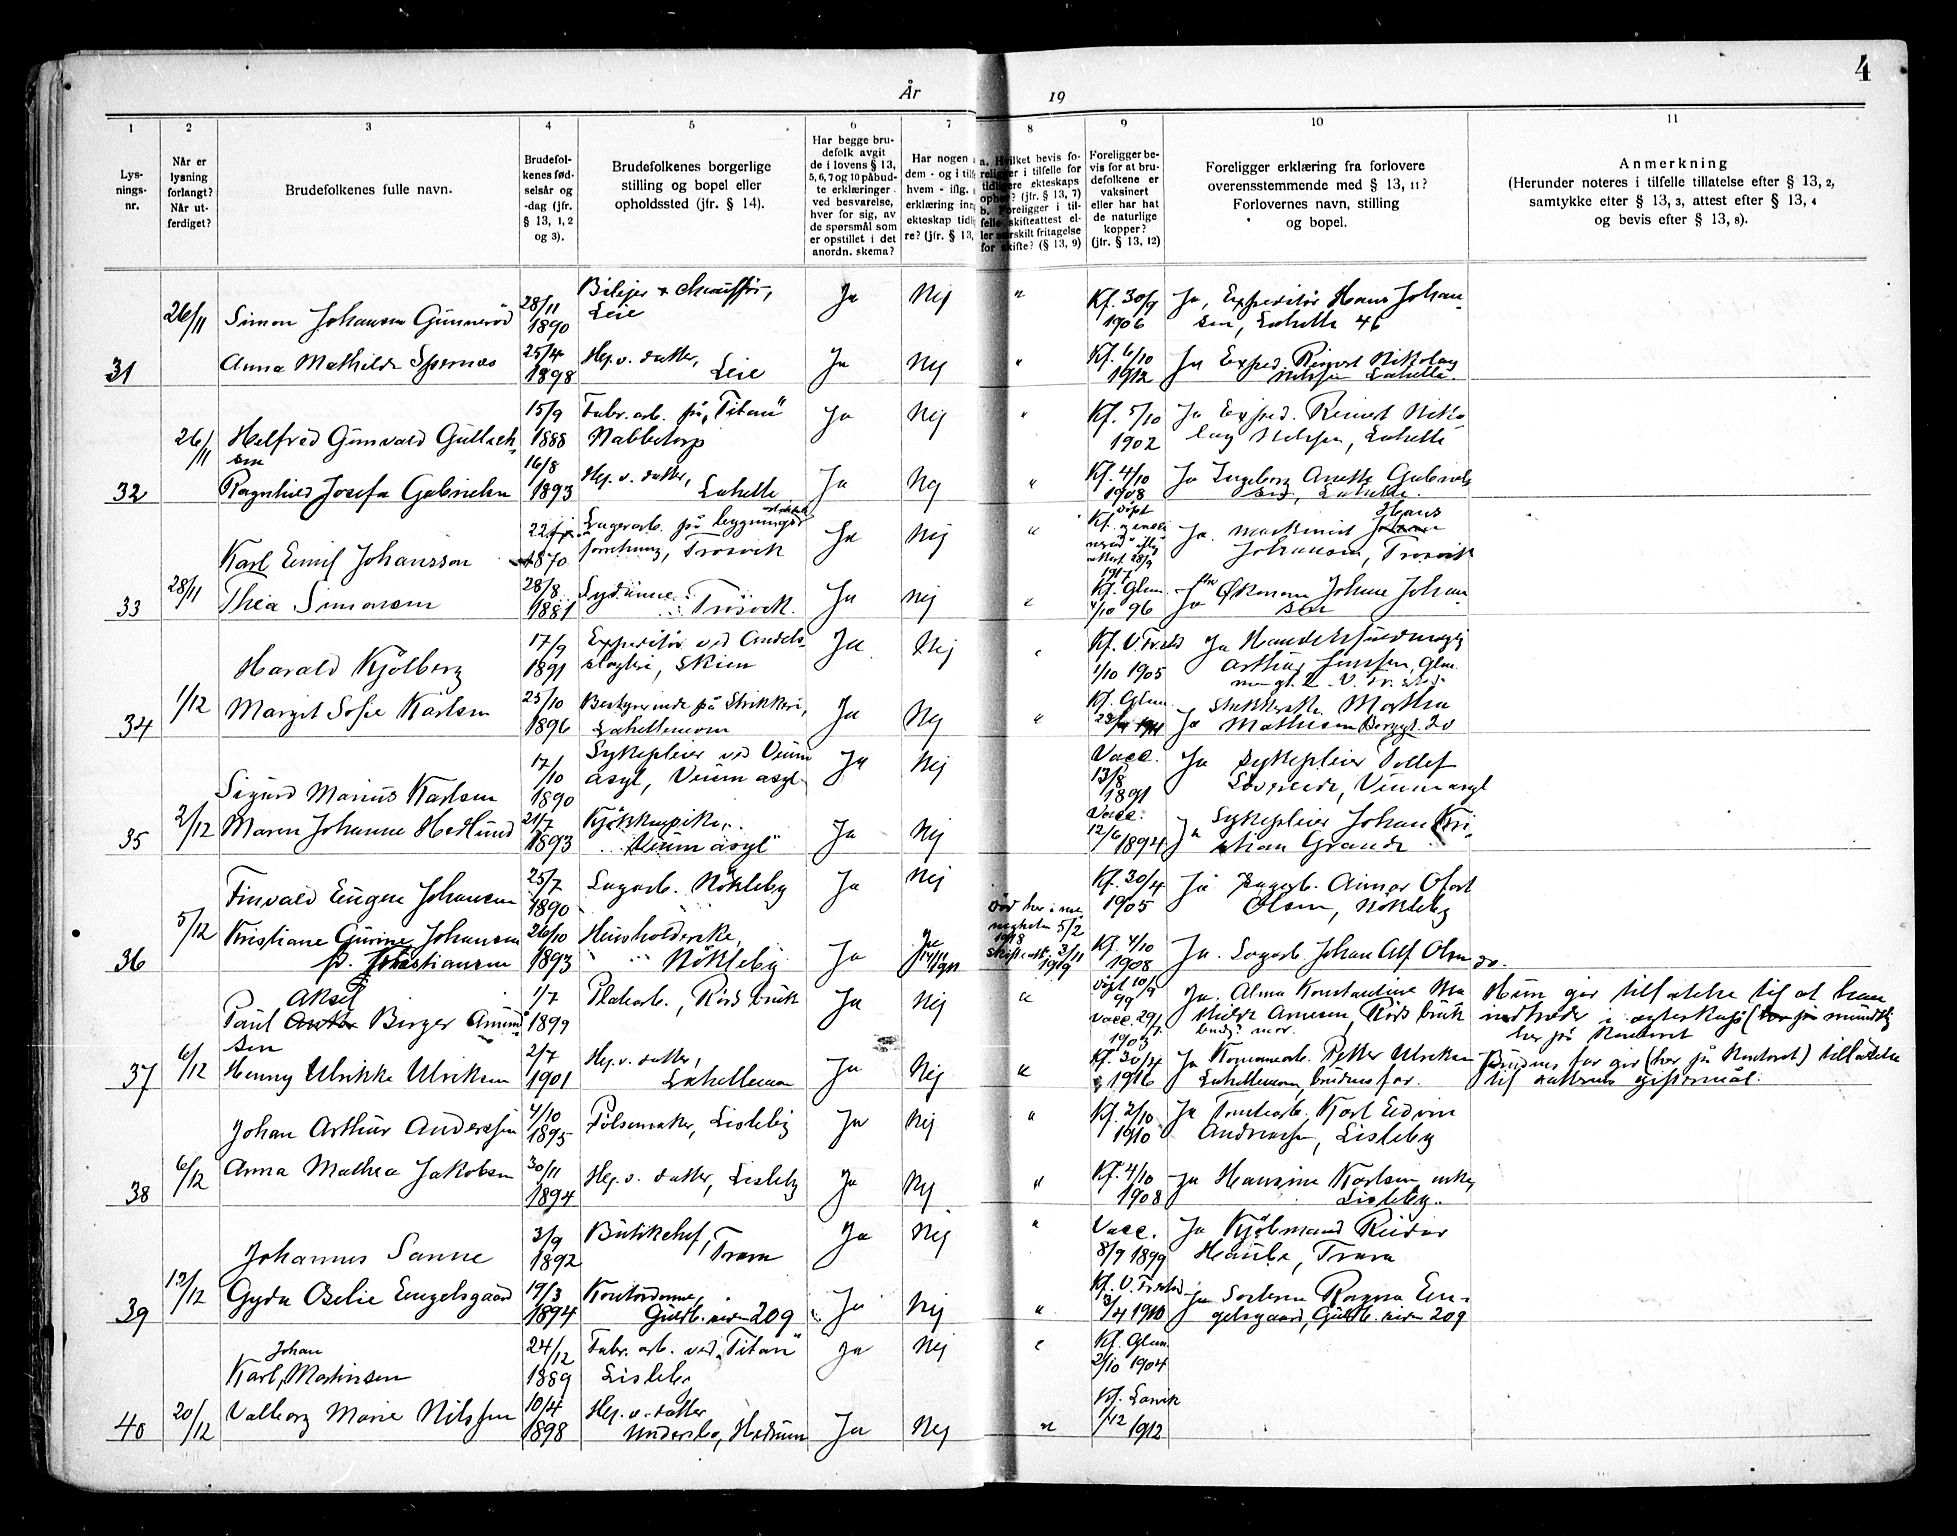 4
År
19
1
2
3
4
5
6
7
8
9
10
11
Lys-
nings-
nr.
Når er
lysning
forlangt?
Når ut-
ferdiget?
Brudefolkenes fulle navn.
Brudefol-
kenes fød-
selsår og
-dag (jfr.
§ 13, 1, 2
og 3).
Brudefolkenes borgerlige
stilling og bopel eller
opholdssted (jfr. § 14).
Har begge bru-
defolk avgit
de i lovens § 13,
5, 6, 7 og 10 påbud-
te erklæringer
ved besvarelse,
hver for sig, av
de spørsmål som
er opstillet i det
anordn. skema?
Har nogen
dem - og i til
hvem - iflg.
erklæring in
ekteskap tidl
re? (jfr. § 13,
a. Hvilket bevis fo-
religger i tilfelle for
tidligere ekteskaps
ophør? (jfr. § 13, 7)
b. Foreligger i til-
felle skifteattest el-
ler særskilt fritagelse
for skifte? (§ 13, 9)
Foreligger be-
vis for at bru-
defolkene er
vaksinert
eller har hat
de naturlige
kopper?
(jfr. § 13, 12)
Foreligger erklæring fra forlovere
overensstemmende med § 13, 11?
Forlovernes navn, stilling
og bopel.
Anmerkning
(Herunder noteres i tilfelle tillatelse efter § 13, 2,
samtykke efter § 13, 3, attest efter § 13, 4
og bevis efter § 13, 8).
26/11 Simon Johansen Gunnerød 28/11 1890 Bileier & chauffør, Leie Ja Nej " Kf. 30/9 1906 Ja, Expeditør Hans Johan-
sen, Lahelle 46
31 Anna Mathilde Spernæs 25/4 1898 Hj. v. datter, Leie Ja Nej " Kf. 6/10 1912 Ja Exped. Reinert Nikolay
Nilssen Lahelle.
26/11 Helfred Gunvald Gullich-
sen 15/9 1888 Fabr. arb. på "Titan" Nabbetorp Ja Nej " Kf. 5/10 1902 Ja Exped. Reinert Niko-
lay Nilssen, Lahelle
32 Ragnhild Josefa Gabrielsen 16/8 1893 Hj. v. datter, Lahelle Ja Nej " Kf. 4/10 1908 Ja Ingeborg Anette Gabriel-
sen, Lahelle.
Karl Emil Johansson 1870 Lagerarb. på bygnings-
forretning, Trosvik Ja Nej " Ja. Maskinist Hans
Johansen, Trosvik
33 28/11 Thea Simonsen 28/8 1881 Sydame Trosvik. Ja Nej " Kf. Glem. 4/10 96 Ja Økonom Johan Johan-
sen
Harald Kjølberg 17/9 1891 Expeditør ved Andels-
slagteri, Skien Ja Nej " Kf. V. Fr.stad 1/10 1905 Ja Handelsfuldmægtig
Arthur Jenssen, Glem.
34 1/12 Margit Sofie Karlsen 25/10 1896 Bestyrerinde på Strikkeri, Lahellemoen Ja Nej " Kf. Glem. Ja Strikkerske Martha
Mathisen Bergsg. 20
Sigurd Marius Karlsen 17/10 1890 Sykepleier ved Veum
asyl, Veum asyl Ja Nej Vacc. 13/8 1891 Ja Sykepleier Tollef
Løvreide, Veum asyl
35 2/12 Maren Johanne Hedlund 21/7 1893 Kjøkkenpike, "Veum asyl" Ja Nej Vacc. 12/6 1894 Ja Sykepleier Johan Kri-
stian Grande
Finvald Eugen Johansen 25/7 1890 Lagarb. Nøkleby Ja Nej Kf. 30/4 1905 Ja Lagerb. Aimar Olort
Olsen, Nøkleby
36 5/12 Kristiane Gurine Johansen
f. Kristiansen 26/10 1893 Husholderske, Nøkleby Ja død her i me-
nigheten 5/2
1918
Skifteatt. 3/11
1919 Kf. 4/10 1908 Ja. Lagarb. Johan Alf Olsen do.
Aksel
Paul Birger Amund-
sen 1/7 1899 Platearb., Røds bruk Ja Nej " Døpt 10/9 99 Vacc. 29/7 1903 Ja. Alma Konstantine Ma-
thilde Arnesen, Røds bruk
brudg. mor. Hun gir tillatelse til at han
indtræder i ægteskap mundtlig
her på kontoret
37 6/12 Henny Ulrikke Ulriksen 2/7 1901 Hj. v. datter, Lahellemoen Ja Nej " Kf. 30/4 1916 Ja Kommunearb. Petter Ulriksen
Lahellemoen, brudens far. Brudens far gir (her på kontoret) tillatelse
til datterens giftermål.
Johan Arthur Anderssen 4/10 1895 Pølsemaker, Lisleby Ja Nej " Kf. 2/10 1910 Ja Tomtearb. Karl Edvin
Andreassen, Lisleby
38 6/12 Anna Mathea Jakobsen 30/11 1894 Hj. v. datter, Lisleby Ja Nej " Kf. 4/10 1908 Ja Hansine Karlsen, enke,
Lisleby.
Johannes Sanne 3/9 1892 Butikchef, Trara Ja Nej " Vacc. 8/9 1899 Ja Kjøbmand Reidar
Hauba, Trara
39 13/12 Gyda Oselie Engelsgaard 19/3 1894 Kontordame, Guldb. veien 209 Ja Nej " Kf. V. Fr.stad 3/4 1910 Ja Søsteren Ragna En-
gelsgaard, Guldb. veien 209
Johan
Karl Martinsen 24/12 1889 Fabr. arb. ved "Titan" Lisleby Ja Nej " Kf. Glem. 2/10 1904
40 20/12 Valborg Marie Nilssen 10/4 1898 Hj. v. datter Undersbo, Hedrum Ja Nej " Kf. Larvik 1/12 1912